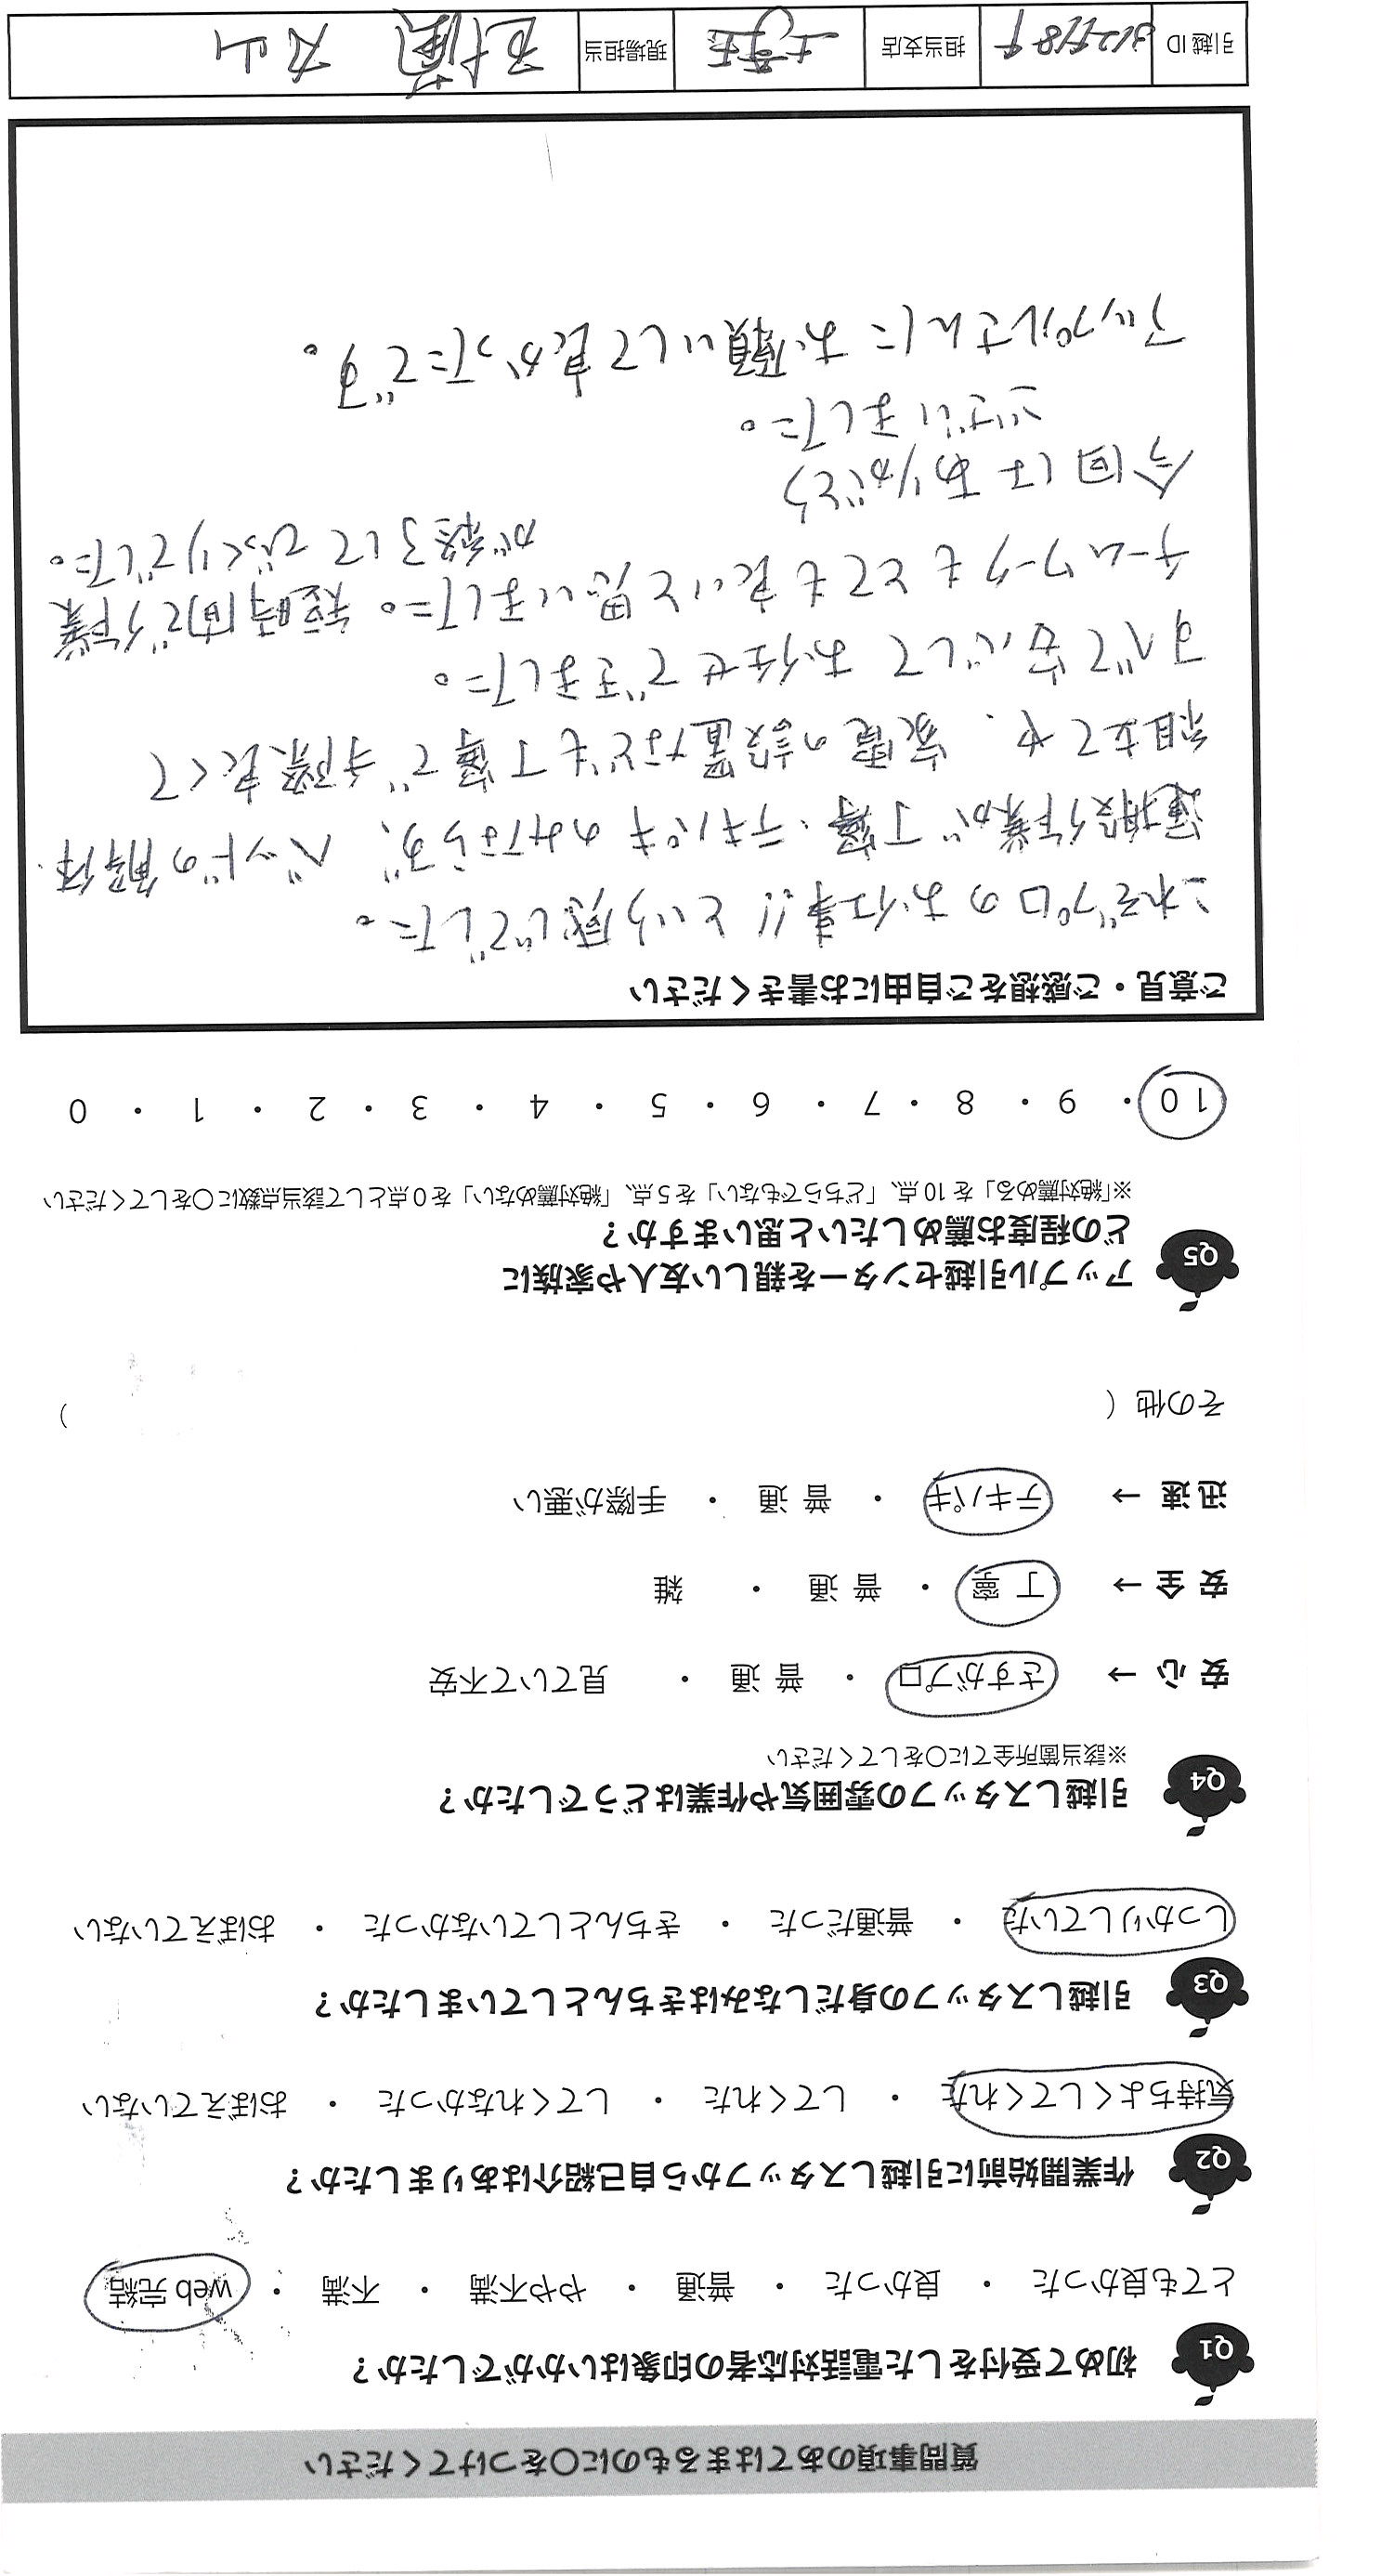 質問事項のあてはまるものに〇をつけてください
Q1 初めて受付をした電話対応者の印象はいかがでしたか？
とても良かった ・ 良かった ・ 普通 ・ やや不満 ・ 不満 ・ web 完結
Q2 作業開始前に引越しスタッフから自己紹介はありましたか？
気持ちよくしてくれた ・ してくれた ・ してくれなかった ・ おぼえていない
Q3 引越しスタッフの身だしなみはきちんとしていましたか？
しっかりしていた ・ 普通だった ・ きちんとしていなかった ・ おぼえていない
Q4 引越しスタッフの雰囲気や作業はどうでしたか？
※該当箇所全てに〇をしてください
安 心 → さすがプロ ・ 普 通 ・ 見ていて不安
安 全 → 丁 寧 ・ 普 通 ・ 雑
迅 速 → テキパキ ・ 普 通 ・ 手際が悪い
その他（ ）
Q5 アップル引越センターを親しい友人や家族に
どの程度お薦めしたいと思いますか？
※「絶対薦める」を 10 点、「どちらでもない」を 5 点、「絶対薦めない」を 0 点として該当点数に〇をしてください
10 ・ 9 ・ 8 ・ 7 ・ 6 ・ 5 ・ 4 ・ 3 ・ 2 ・ 1 ・ 0
ご意見・ご感想をご自由にお書きください
これぞプロのお仕事!! という感じでした。
運搬作業が丁寧・テキパキのみならず、ベッドの解体・
組立てや、家電の設置なども丁寧で手際良くて
すべて安心してお任せできました。
チームワークもとても良いと思いました。短時間で作業
が終了してびっくりでした。
今回はありがとう
ございました。
アップルさんにお願いして良かったです。
引越 ID 担当支店 現場担当 丸山